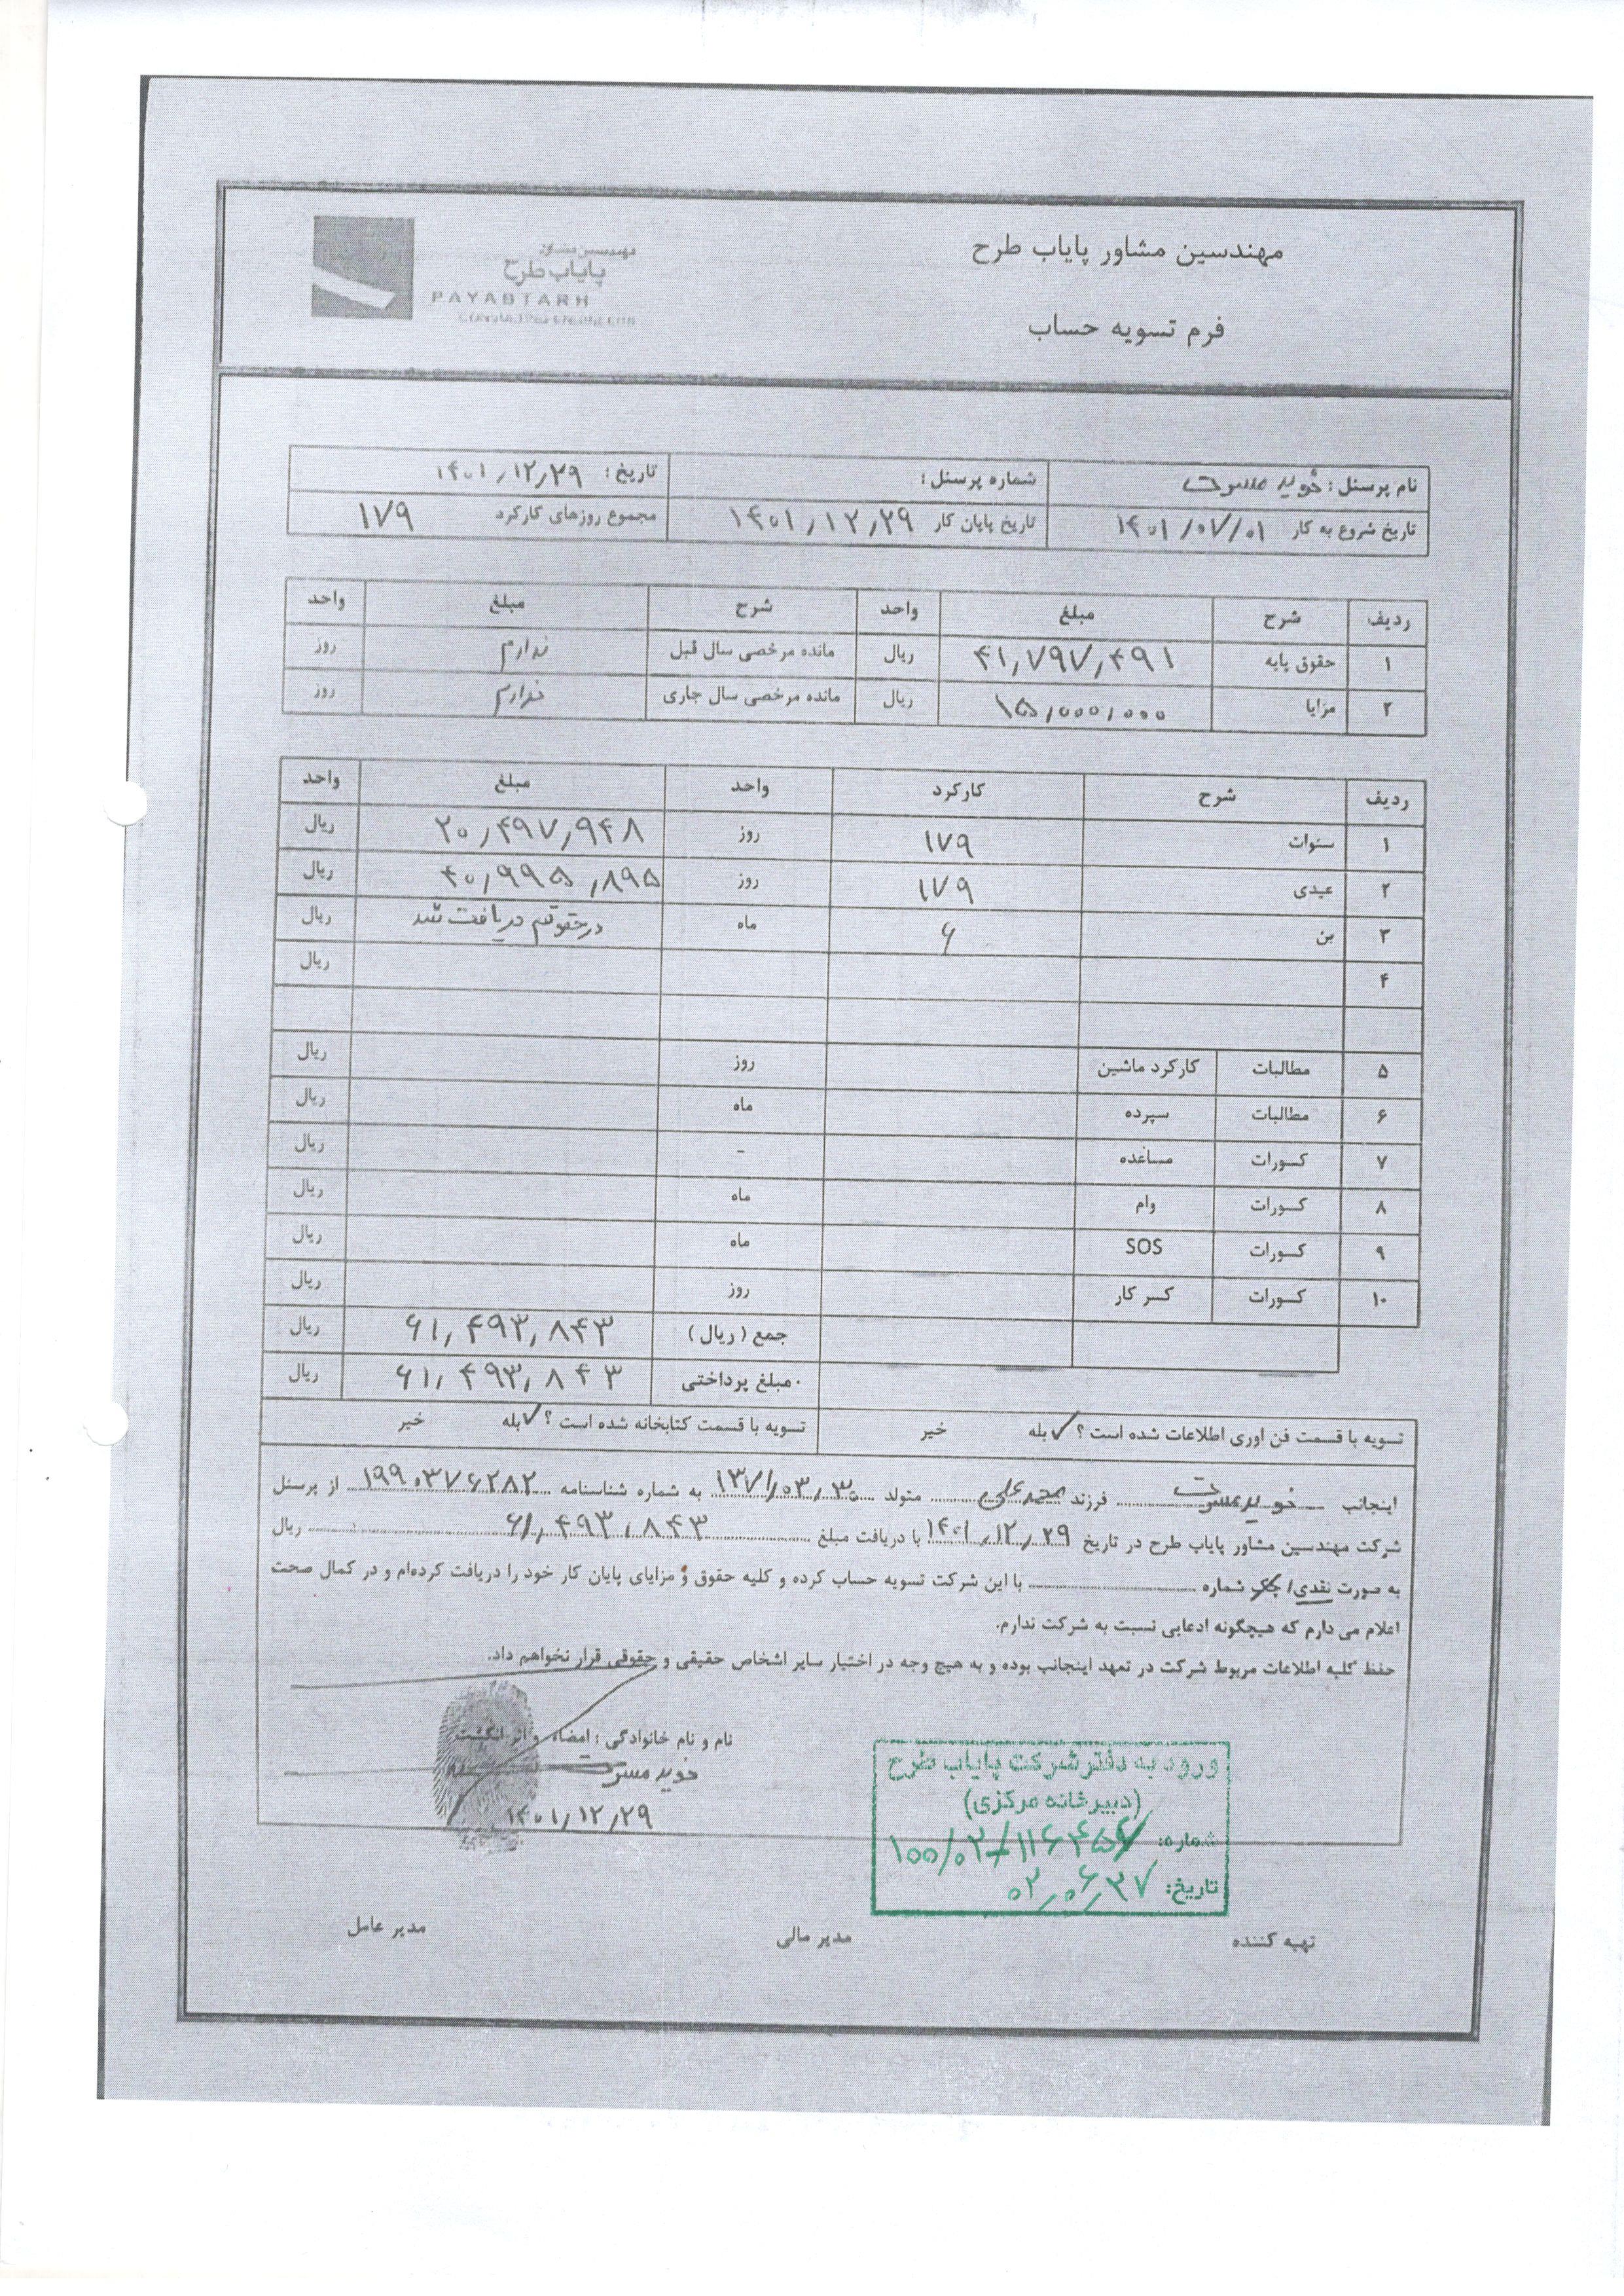 مهندسین مشاور پایاب طرح
مهندسین مشاور
پایاب طرح
PAYABTARH
فرم تسویه حساب
نام پرسنل : نوید مسرت شماره پرسنل : تاریخ : ۱۴۰۱/۱۲/۲۹
تاریخ شروع به کار ۱۴۰۱/۰۷/۰۱ تاریخ پایان کار ۱۴۰۱/۱۲/۲۹ مجموع روزهای کارکرد ۱۷۹
ردیف شرح مبلغ واحد شرح مبلغ واحد
۱ حقوق پایه ۴۱,۷۹۷,۴۹۱ ریال مانده مرخصی سال قبل ندارم روز
۲ مزایا ۱۵,۰۰۰,۰۰۰ ریال مانده مرخصی سال جاری ندارم روز
ردیف شرح کارکرد واحد مبلغ واحد
۱ سنوات ۱۷۹ روز ۲۰,۴۹۷,۹۴۸ ریال
۲ عیدی ۱۷۹ روز ۴۰,۹۹۵,۸۹۵ ریال
۳ بن ۶ ماه درحقوقم دریافت شد ریال
۴ ریال
۵ مطالبات کارکرد ماشین روز ریال
۶ مطالبات سپرده ماه ریال
۷ کسورات مساعده - ریال
۸ کسورات وام ماه ریال
۹ کسورات SOS ماه ریال
۱۰ کسورات کسر کار روز ریال
جمع (ریال) ۶۱,۴۹۳,۸۴۳ ریال
مبلغ پرداختی ۶۱,۴۹۳,۸۴۳ ریال
تسویه با قسمت فن اوری اطلاعات شده است ؟ ✓بله خیر تسویه با قسمت کتابخانه شده است ؟ ✓بله خیر
اینجانب نوید مسرت فرزند محمدعلی متولد ۱۳۷۱/۰۳/۳۰ به شماره شناسنامه ۱۹۹۰۳۷۶۲۸۲ از پرسنل
شرکت مهندسین مشاور پایاب طرح در تاریخ ۱۴۰۱/۱۲/۲۹ با دریافت مبلغ ۶۱,۴۹۳,۸۴۳ ریال
به صورت نقدی/ چک شماره با این شرکت تسویه حساب کرده و کلیه حقوق و مزایای پایان کار خود را دریافت کرده‌ام و در کمال صحت
اعلام می دارم که هیچگونه ادعایی نسبت به شرکت ندارم.
حفظ کلیه اطلاعات مربوط شرکت در تعهد اینجانب بوده و به هیچ وجه در اختیار سایر اشخاص حقیقی و حقوقی قرار نخواهم داد.
نام و نام خانوادگی : امضاء و اثر انگشت
نوید مسرت
۱۴۰۱/۱۲/۲۹
ورود به دفتر شرکت پایاب طرح
(دبیرخانه مرکزی)
شماره: ۱۰۰/۰۲-۱۱۶۴۵۶
تاریخ: ۰۲/۰۶/۲۷
تهیه کننده مدیر مالی مدیر عامل